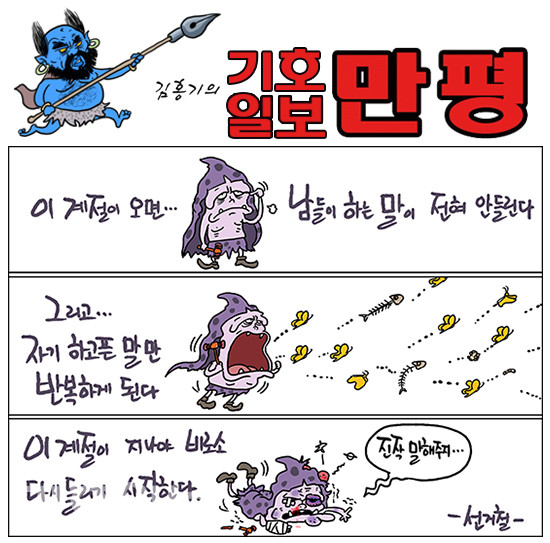 김홍기의
기호
일보
만평
이 계절이 오면...
남들이 하는 말이 전혀 안들린다
그리고...
자기 하고픈 말만
반복하게 된다
이 계절이 지나야 비로소
다시 들리기 시작한다.
진작 말해주지...
-선거철-